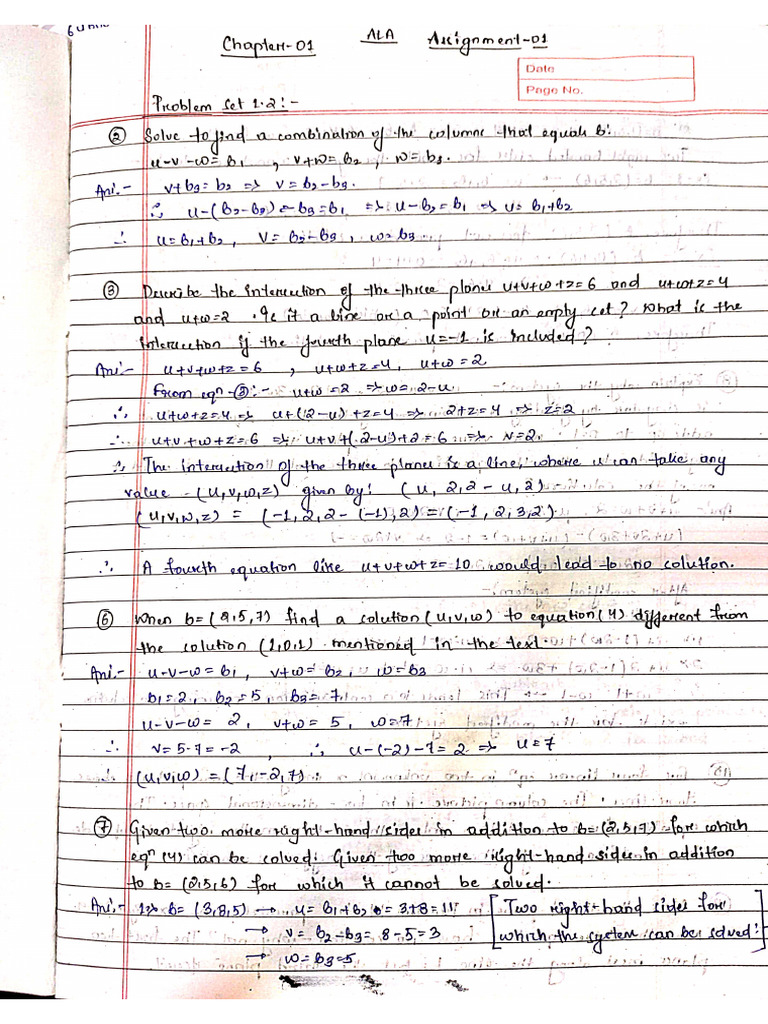 Chapter-01 ALA Assignment-01
Date
Page No.
Problem set 1.2:-
② Solve to find a combination of the columns that equals b:
u-v-w=b₁ , v+w=b₂ , w=b₃.
Ans:- v+b₃=b₂ => v=b₂-b₃.
∴ u-(b₂-b₃)-b₃=b₁ => u-b₂=b₁ => u=b₁+b₂
∴ u=b₁+b₂, v=b₂-b₃, w=b₃
③ Describe the intersection of the three planes u+v+w+z=6 and u+w+z=4
and u+w=2 . Is it a line or a point or an empty set? What is the
intersection if the fourth plane u=-1 is included?
Ans:- u+v+w+z=6 , u+w+z=4, u+w=2
From eqⁿ-③:- u+w=2 => w=2-u
∴ u+w+z=4 => u+(2-u)+z=4 => 2+z=4 => z=2
∴ u+v+w+z=6 => u+v+(2-u)+2=6 => v=2.
∴ The intersection of the three planes is a line, where u can take any
value - (u,v,w,z) given by: (u, 2, 2-u, 2)
(u,v,w,z) = (-1, 2, 2-(-1), 2) = (-1, 2, 3, 2).
∴ A fourth equation like u+v+w+z=10 would lead to no solution.
⑥ When b=(2,5,7) find a solution (u,v,w) to equation (4) different from
the solution (1,0,1) mentioned in the text.
Ans:- u-v-w=b₁ , v+w=b₂ , w=b₃
b₁=2, b₂=5, b₃=7
u-v-w= 2, v+w=5, w=7
∴ v=5-7=-2 , ∴ u-(-2)-7=2 => u=7
(u,v,w)=(7,-2,7)
⑦ Given two more right-hand sides in addition to b=(2,5,7) for which
eqⁿ (4) can be solved. Given two more right-hand sides in addition
to b=(2,5,6) for which it cannot be solved.
Ans:- 1> b=(3,8,5) → u=b₁+b₂ = 3+8=11 [Two right-hand sides for
→ v=b₂-b₃=8-5=3 which the system can be solved:]
→ w=b₃=5